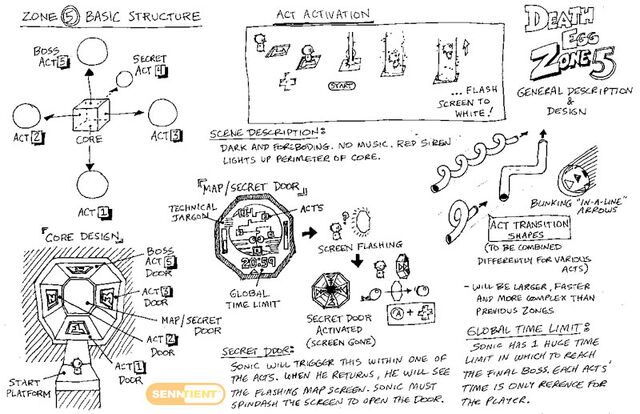 ZONE 5 BASIC STRUCTURE
BOSS
ACT 5
SECRET
ACT 4
ACT 2
CORE
ACT 3
ACT 1
ACT ACTIVATION
START
... FLASH
SCREEN TO
WHITE!
SCENE DESCRIPTION:
DARK AND FORBODING. NO MUSIC. RED SIREN
LIGHTS UP PERIMETER OF CORE.
DEATH
EGG
ZONE 5
GENERAL DESCRIPTION
&
DESIGN
BLINKING "IN-A-LINE"
ARROWS
ACT TRANSITION
SHAPES
(TO BE COMBINED
DIFFERENTLY FOR VARIOUS
ACTS)
- WILL BE LARGER, FASTER
AND MORE COMPLEX THAN
PREVIOUS ZONES
CORE DESIGN
BOSS
ACT 5
DOOR
ACT 3
DOOR
MAP/SECRET
DOOR
ACT 2
DOOR
ACT 1
DOOR
START
PLATFORM
MAP/SECRET DOOR
TECHNICAL
JARGON
ACTS
20:59
GLOBAL
TIME LIMIT
SCREEN FLASHING
SECRET DOOR
ACTIVATED
(SCREEN GONE)
A +
SECRET DOOR:
SONIC WILL TRIGGER THIS WITHIN ONE OF
THE ACTS. WHEN HE RETURNS, HE WILL SEE
THE FLASHING MAP SCREEN. SONIC MUST
SPINDASH THE SCREEN TO OPEN THE DOOR.
GLOBAL TIME LIMIT:
SONIC HAS 1 HUGE TIME
LIMIT IN WHICH TO REACH
THE FINAL BOSS. EACH ACTS'
TIME IS ONLY RERENCE FOR
THE PLAYER.
SENNTIENT